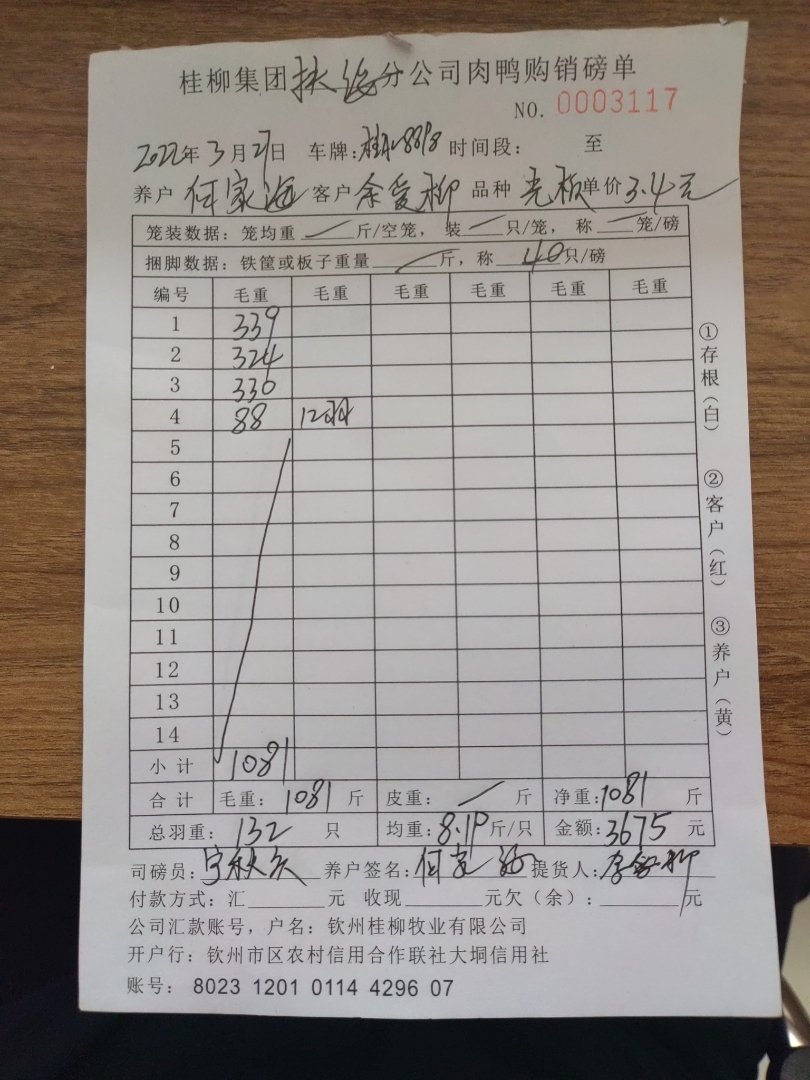 桂柳集团扶绥分公司肉鸭购销磅单
NO. 0003117
2022年3月27日 车牌: 时间段: 至
养户 何家海 客户 余爱柳 品种 单价3.4元
笼装数据: 笼均重 斤/空笼, 装 只/笼, 称 笼/磅
捆脚数据: 铁筐或板子重量 斤, 称 40只/磅
编号 毛重 毛重 毛重 毛重 毛重 毛重
1 339
2 324
3 330
4 88 12羽
5
6
7
8
9
10
11
12
13
14
小计 1081
合计 毛重: 1081 斤 皮重: 斤 净重:1081 斤
总羽重: 132 只 均重:8.19斤/只 金额:3675 元
司磅员: 养户签名: 何家海 提货人:
付款方式: 汇 元 收现 元欠(余): 元
公司汇款账号, 户名: 钦州桂柳牧业有限公司
开户行: 钦州市区农村信用合作联社大垌信用社
账号: 8023 1201 0114 4296 07
①存根(白)
②客户(红)
③养户(黄)